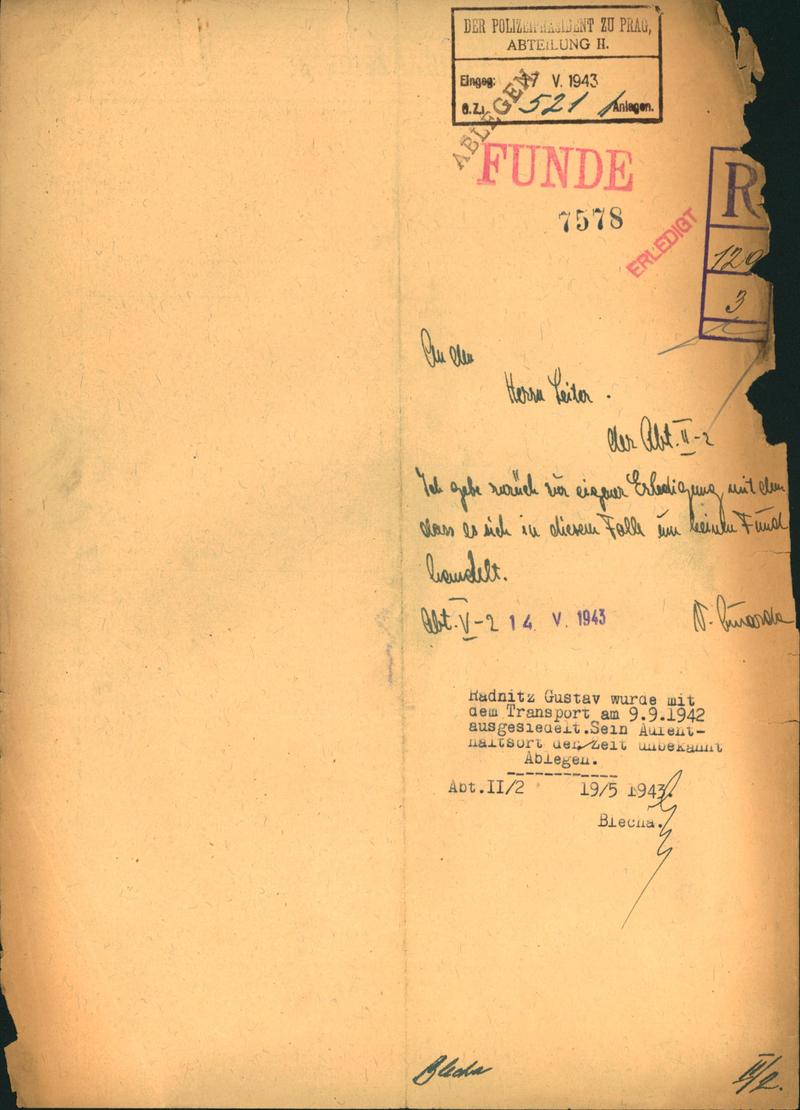 DER POLIZEIPRÄSIDENT ZU PRAG,
ABTEILUNG II.
Eingeg: 17 V. 1943
G.Z. 521 Anlagen.
ABLEGEN
FUNDE
7578
ERLEDIGT
R
129
3
An den
Herrn Leiter.
der Abt. II-2
Ich gebe zurück zur eigener Erledigung mit dem
dass es sich in diesem Falle um keinen Fund
handelt.
Abt. V-2 14 V. 1943
Radnitz Gustav wurde mit
dem Transport am 9.9.1942
ausgesiedelt.Sein Aufent-
haltsort der Zeit unbekannt
Ablegen.
Abt.II/2 19/5 1943.
Blecha.
Blecha
II/2.